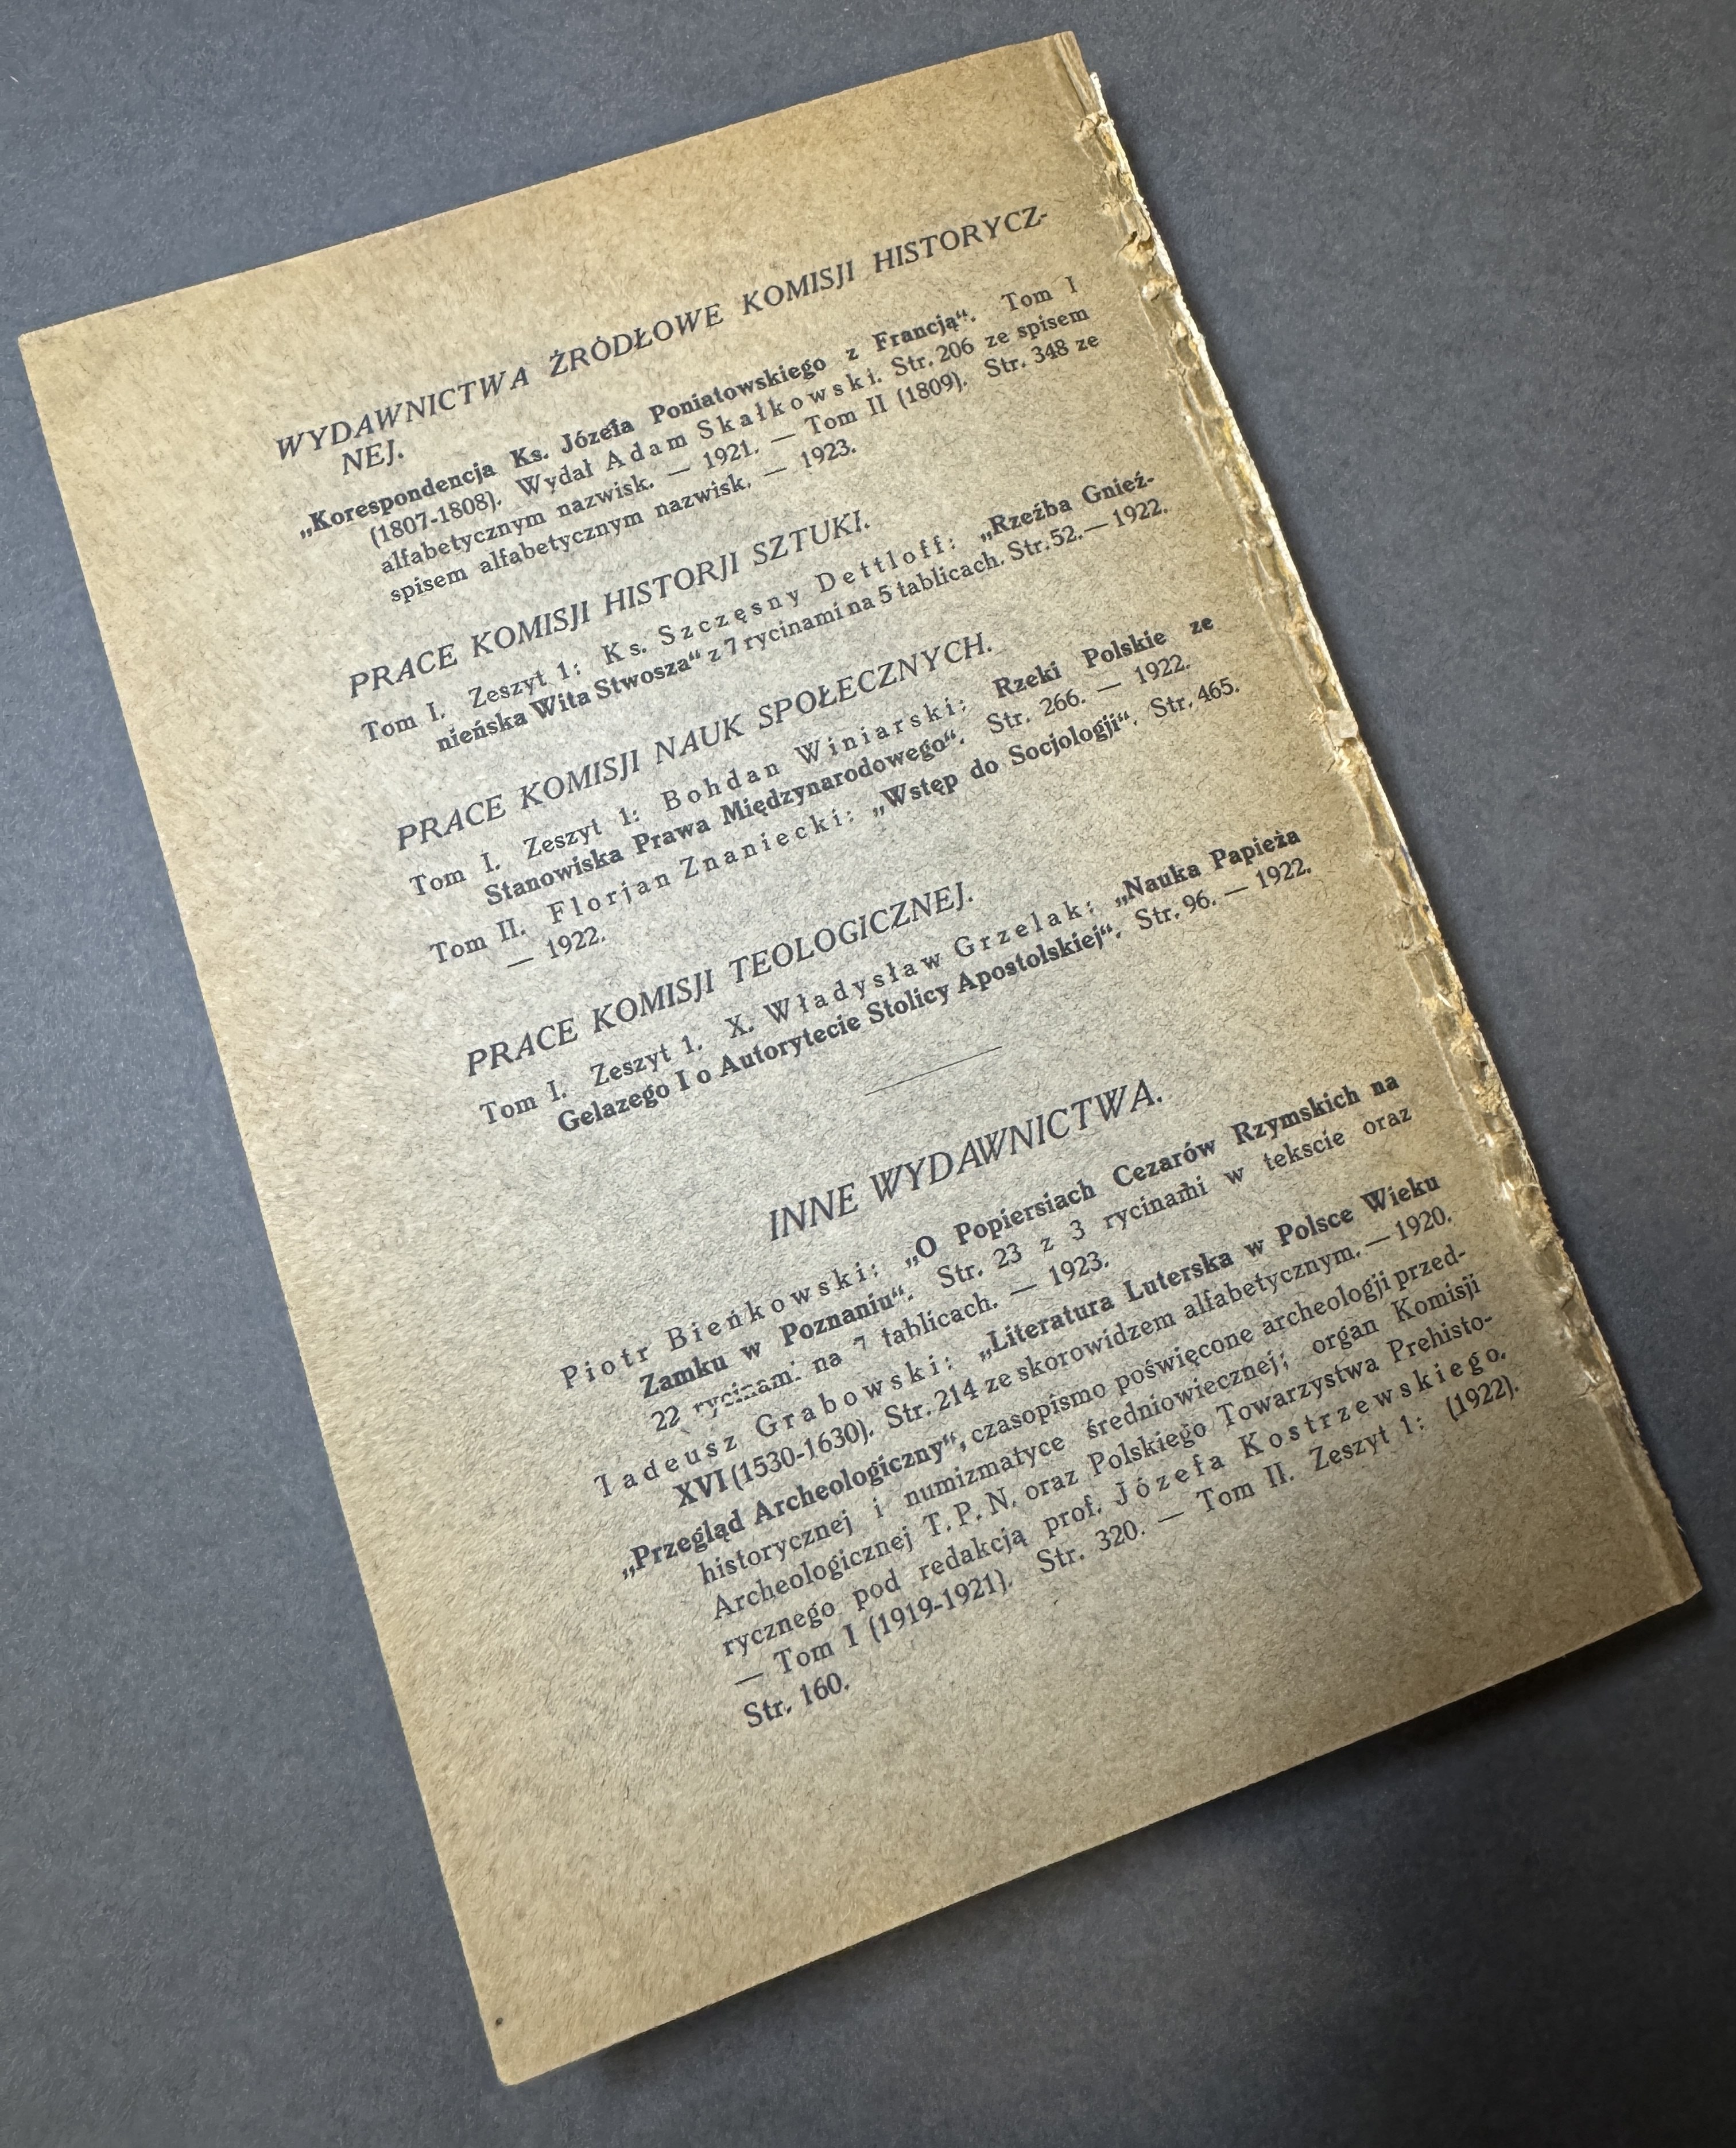 WYDAWNICTWA ŹRÓDŁOWE KOMISJI HISTORYCZ-
NEJ.
„Korespondencja Ks. Józefa Poniatowskiego z Francją“. Tom I
(1807-1808). Wydał Adam Skałkowski. Str. 206 ze spisem
alfabetycznym nazwisk. — 1921. — Tom II (1809). Str. 348 ze
spisem alfabetycznym nazwisk. — 1923.
PRACE KOMISJI HISTORJI SZTUKI.
Tom I. Zeszyt 1: Ks. Szczęsny Dettloff: „Rzeźba Gnieź-
nieńska Wita Stwosza“ z 7 rycinami na 5 tablicach. Str. 52. — 1922.
PRACE KOMISJI NAUK SPOŁECZNYCH.
Tom I. Zeszyt 1: Bohdan Winiarski: Rzeki Polskie ze
Stanowiska Prawa Międzynarodowego“. Str. 266. — 1922.
Tom II. Florjan Znaniecki: „Wstęp do Socjologji“. Str. 465.
— 1922.
PRACE KOMISJI TEOLOGICZNEJ.
Tom I. Zeszyt 1. X. Władysław Grzelak: „Nauka Papieża
Gelazego I o Autorytecie Stolicy Apostolskiej“. Str. 96. — 1922.
INNE WYDAWNICTWA.
Piotr Bieńkowski: „O Popiersiach Cezarów Rzymskich na
Zamku w Poznaniu“. Str. 23 z 3 rycinami w tekscie oraz
22 rycinami na 7 tablicach. — 1923.
Tadeusz Grabowski: „Literatura Luterska w Polsce Wieku
XVI (1530-1630). Str. 214 ze skorowidzem alfabetycznym. — 1920.
„Przegląd Archeologiczny“, czasopismo poświęcone archeologji przed-
historycznej i numizmatyce średniowiecznej; organ Komisji
Archeologicznej T. P. N. oraz Polskiego Towarzystwa Prehisto-
rycznego pod redakcją prof. Józefa Kostrzewskiego.
— Tom I (1919-1921). Str. 320. — Tom II. Zeszyt 1: (1922).
Str. 160.